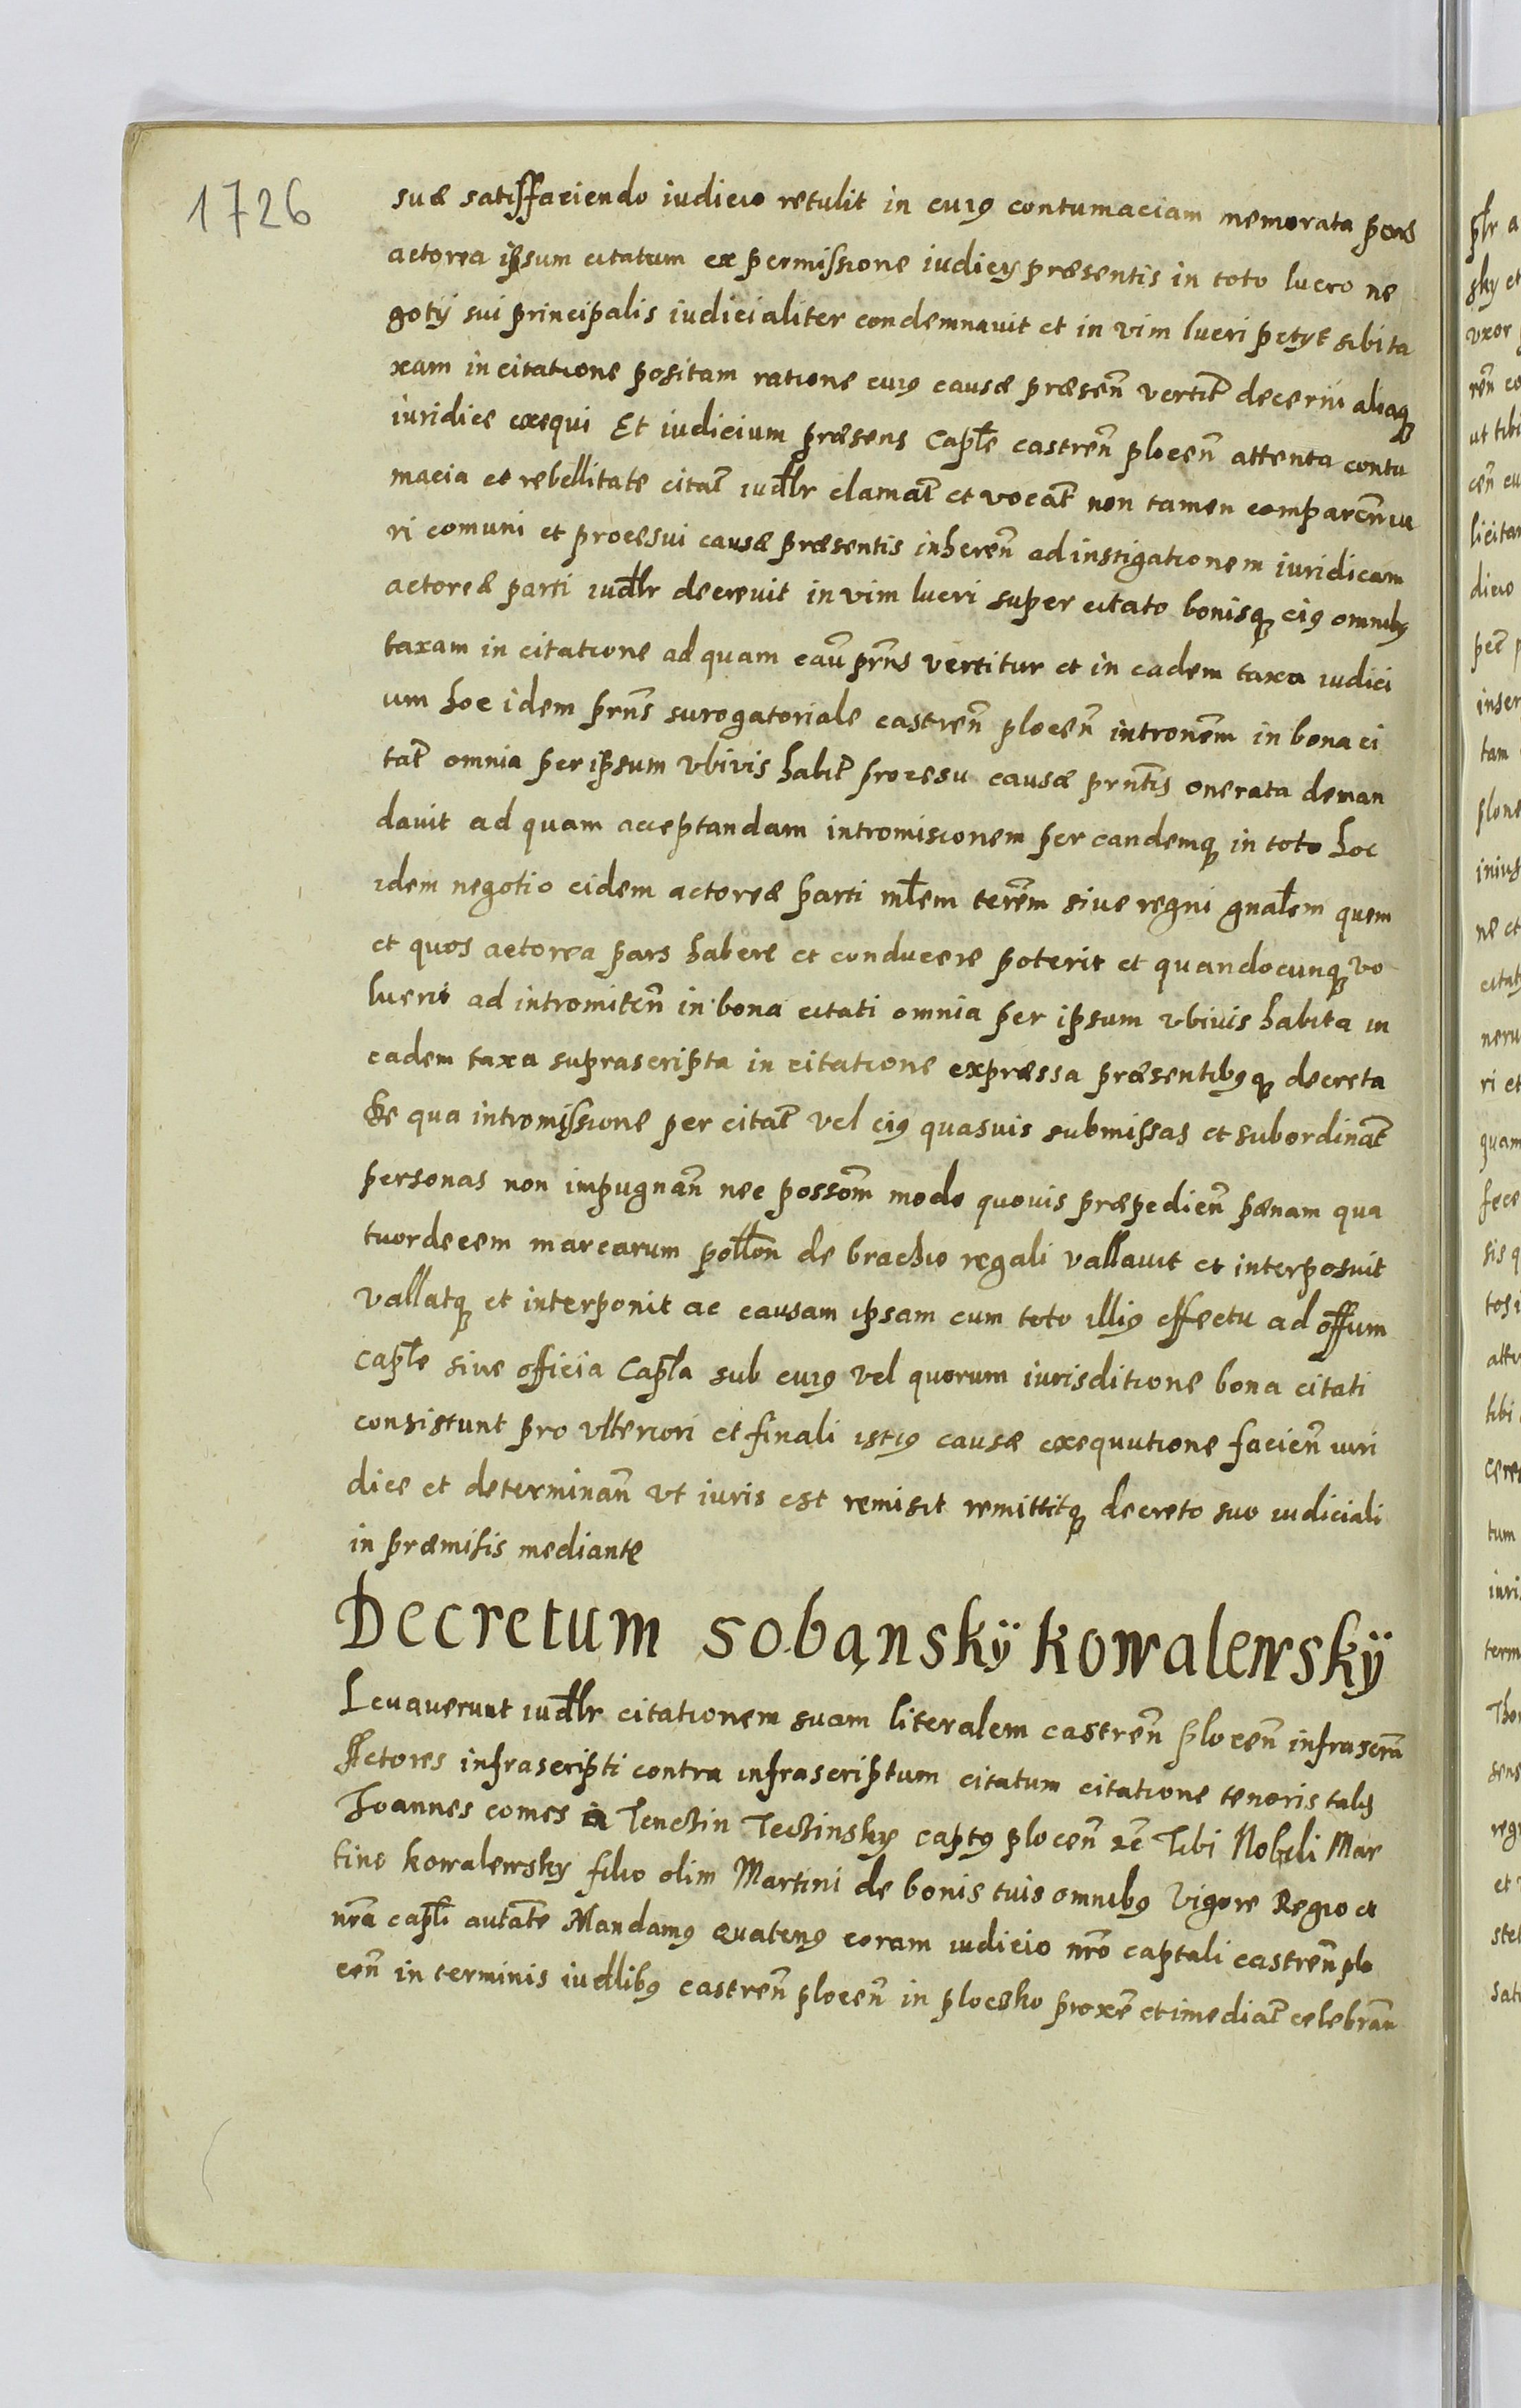 1726
suæ satisfaciendo iudicio retulit in cuiꝰ contumaciam memorata pars
actorea ipsum citatum ex permissione iudicy præsentis in toto lucro ne
gotÿ sui principalis iudicialiter condemnauit et in vim lucri petyt sibi ta
xam in citatione positam ratione cuiꝰ causæ præsen̄ vertit̄ decerni aliaqꝫ
iuridice exequi Et iudicium præsens Captl̄e castren̄ plocen̄ attenta contu
macia et rebellitate citat̄ iudl̄r clamat̄ et vocat̄ non tamen comparen̄ iu
ri comuni et procesui causæ præsentis inheren̄ ad instigationem iuridicam
actoreæ parti iudl̄r decrevit in vim lucri super citato bonisqꝫ eiꝰ omnibꝰ
taxam in citatione ad quam cau̅ prn̄s vertitur et in eadem taxa iudici
um hoc idem prn̄s surogatoriale castren̄ plocen̄ intronem̄ in bona ci
tat̄ omnia per ipsum vbivis habit̄ procesu causæ prn̄tis onerata deman
davit ad quam acceptandam intromisionem per eandemqꝫ in toto hoc
idem negotio eidem actoreæ parti ml̄em terrēm siue regni gnal̄em quem
et quos actorea pars habere et conducere poterit et quandocunqꝫ vo
luerit ad intromiten̄ in bona citati omnia per ipsum vbivis habita in
eadem taxa suprascripta in citatione expræssa præsentibꝰqꝫ decreta
De qua intromissione per citat̄ vel eiꝰ quasuis submissas et subordinat̄
personas non impugnan̄ nec possom̄ modo quovis præpedien̄ pænam qua
tuordecem marcarum poll̄on de brachio regali vallauit et interposuit
vallatqꝫ et interponit ac causam ipsam cum toto illiꝰ effectu ad off̄um
Captl̄e siue officia Captl̄a sub cuiꝰ vel quorum iurisditione bona citati
consistunt pro vlteriori et finali istiꝰ causæ exequutione facien̄ iuri
dice et determinan̄ vt iuris est remisit remittitqꝫ decreto suo iudiciali
in præmisis mediante
Decretum sobąnskÿ kowalewskÿ
Leuauerunt iudl̄r citationem suam literalem castren̄ plocen̄ infrascrā
Actores infrascripti contra infrascriptum citatum citatione tenoris talis
Joannes comes a Tenczin Teczinsky captꝰ plocen̄ zc̄ Tibi Nobili Mar
tino kowalewsky filio olim Martini de bonis tuis omnibꝰ Vigore Regio et
nrā captl̄i autāte Mandamꝰ quatenꝰ coram iudicio nrō captali castren̄ plo
cen̄ in terminis iudlibꝰ castren̄ plocen̄ in plocsko proxē et imediat̄ celebran̄